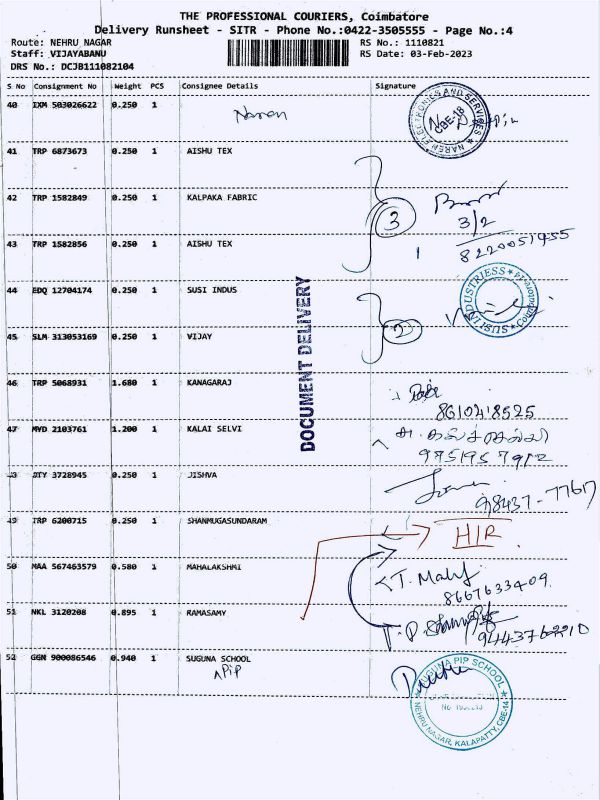 THE PROFESSIONAL COURIERS, Coimbatore
Delivery Runsheet - SITR - Phone No.:0422-3505555 - Page No.:4
Route: NEHRU_NAGAR RS No.: 1110821
Staff: VIJAYABANU RS Date: 03-Feb-2023
DRS No.: DCJB111082104
S No Consignment No Weight PCS Consignee Details Signature
40 IXM 503026622 0.250 1 Naren
NAREN ELECTRONICS AND SERVICES CBE-18
41 TRP 6873673 0.250 1 AISHU TEX
42 TRP 1582849 0.250 1 KALPAKA FABRIC
3 3/2
43 TRP 1582856 0.250 1 AISHU TEX
8220051455
44 EDQ 12704174 0.250 1 SUSI INDUS
SUSI INDUSTRIESS
45 SLM 313053169 0.250 1 VIJAY
2
DOCUMENT DELIVERY
46 TRP 5068931 1.680 1 KANAGARAJ
8610418525
47 MYD 2103761 1.200 1 KALAI SELVI
9751957912
48 DTY 3728945 0.250 1 JISHVA
98437-77617
49 TRP 6200715 0.250 1 SHANMUGASUNDARAM
H/R
50 MAA 567463579 0.580 1 MAHALAKSHMI
T. Mahf
8667633409
51 NKL 3120208 0.895 1 RAMASAMY
9443762210
52 GGN 900086546 0.940 1 SUGUNA SCHOOL
PIP
SUGUNA PIP SCHOOL
NEHRU NAGAR, KALAPATTY, CBE-14